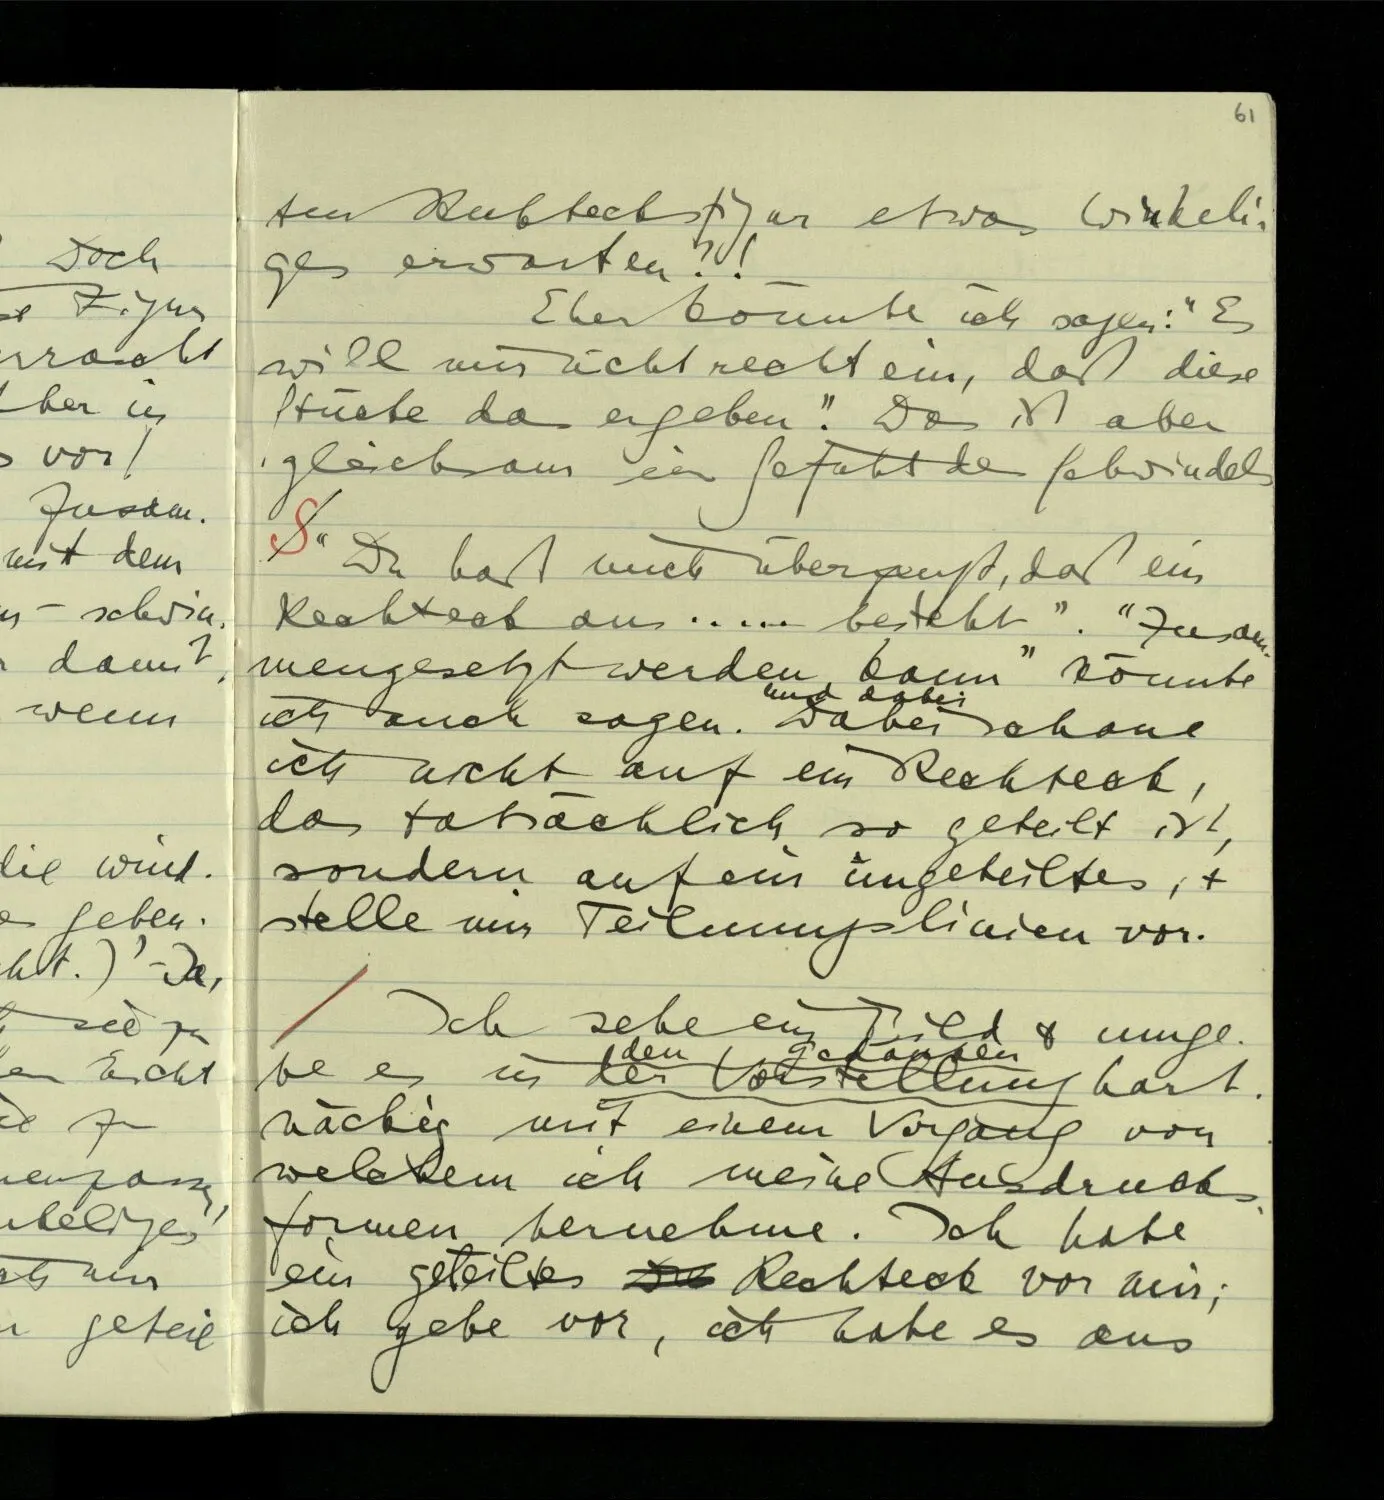 61
Doch
Figur
ber in
vor/
Zusam-
mit dem
– schwin-
damit,
wenn
die wind-
es geben.
Ja,
sie zu
nicht
zu
geteil
ten Rechtecksfigur etwas Winkeli-
ges erwarten?!
Eher könnte ich sagen: "Es
will mir nicht recht ein, daß diese
Stücke das ergeben". Das ist aber
gleichsam ein Gefühl des Schwindels
S "Du hast mich überzeugt, daß ein
Rechteck aus ..... besteht". "Zusam-
mengesetzt werden kann" könnte
und dabei
ich auch sagen. Dabei schaue
ich nicht auf ein Rechteck,
das tatsächlich so geteilt ist,
sondern auf ein ungeteiltes, +
stelle mir Teilungslinien vor.
/ Ich sehe ein Bild & umge-
den Gedanken
be es in der Vorstellung hart-
näckig mit einem Vorgang von
welchem ich meine Ausdrucks-
formen hernehme. Ich habe
ein geteiltes Rechteck vor mir;
ich gebe vor, ich habe es aus